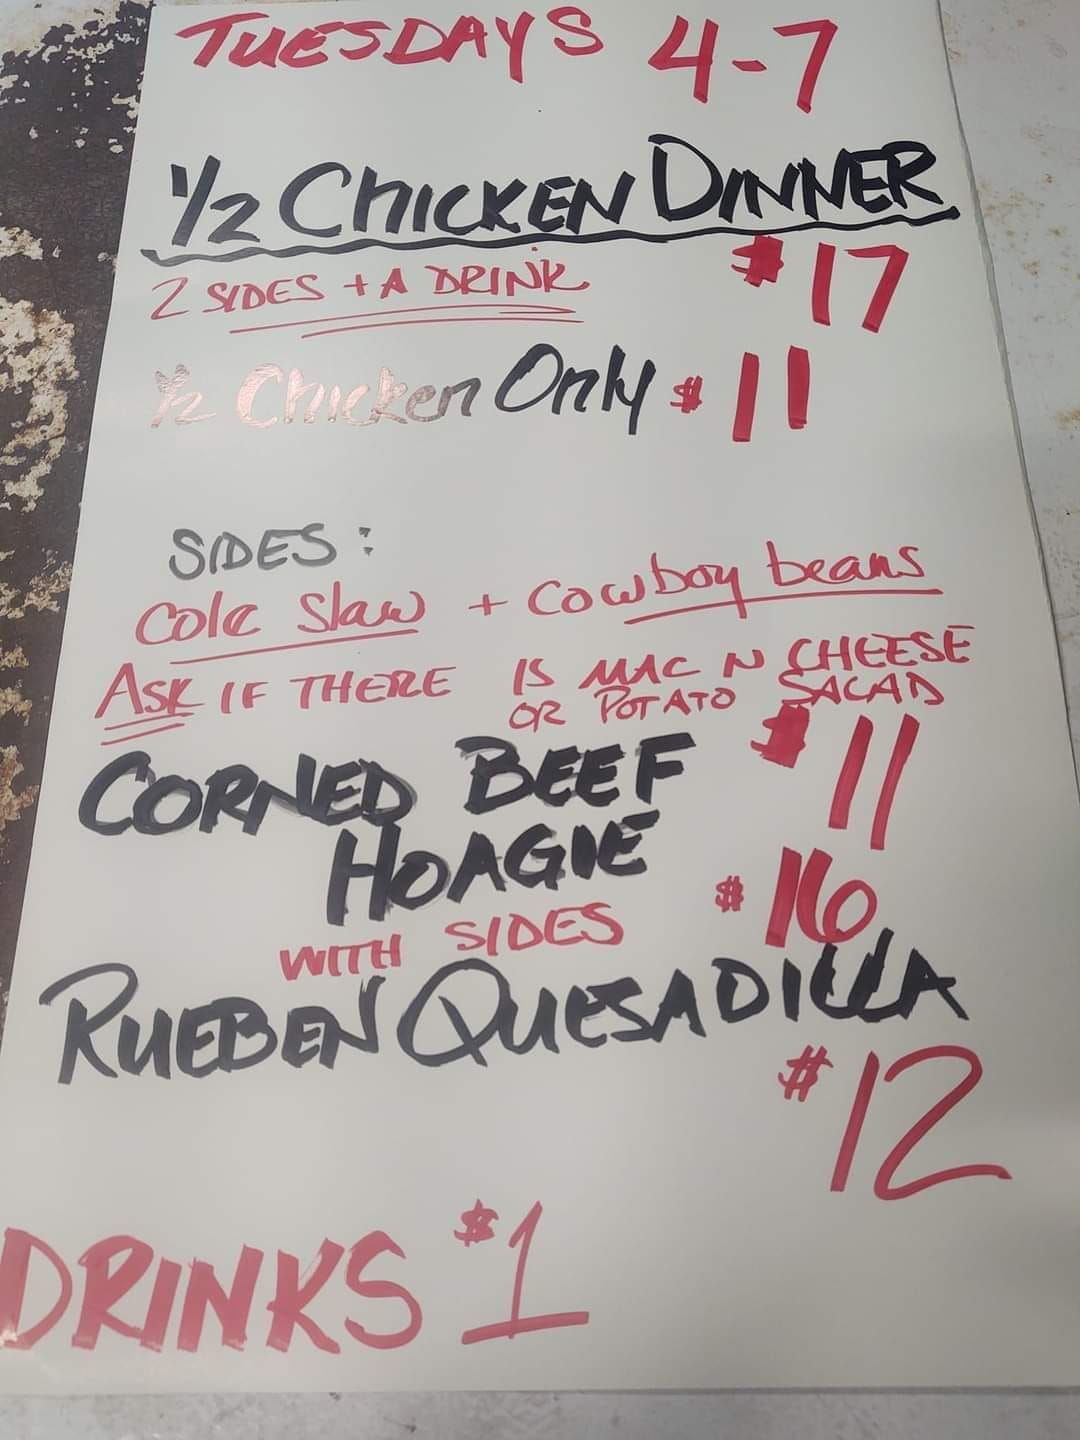 TUESDAYS 4-7
1/2 CHICKEN DINNER
2 SIDES + A DRINK $17
1/2 Chicken Only $11
SIDES:
Cole Slaw + Cowboy beans
ASK IF THERE IS MAC N CHEESE
OR POTATO SALAD
CORNED BEEF $11
HOAGIE
WITH SIDES $16
RUEBEN QUESADILLA
$12
DRINKS $1